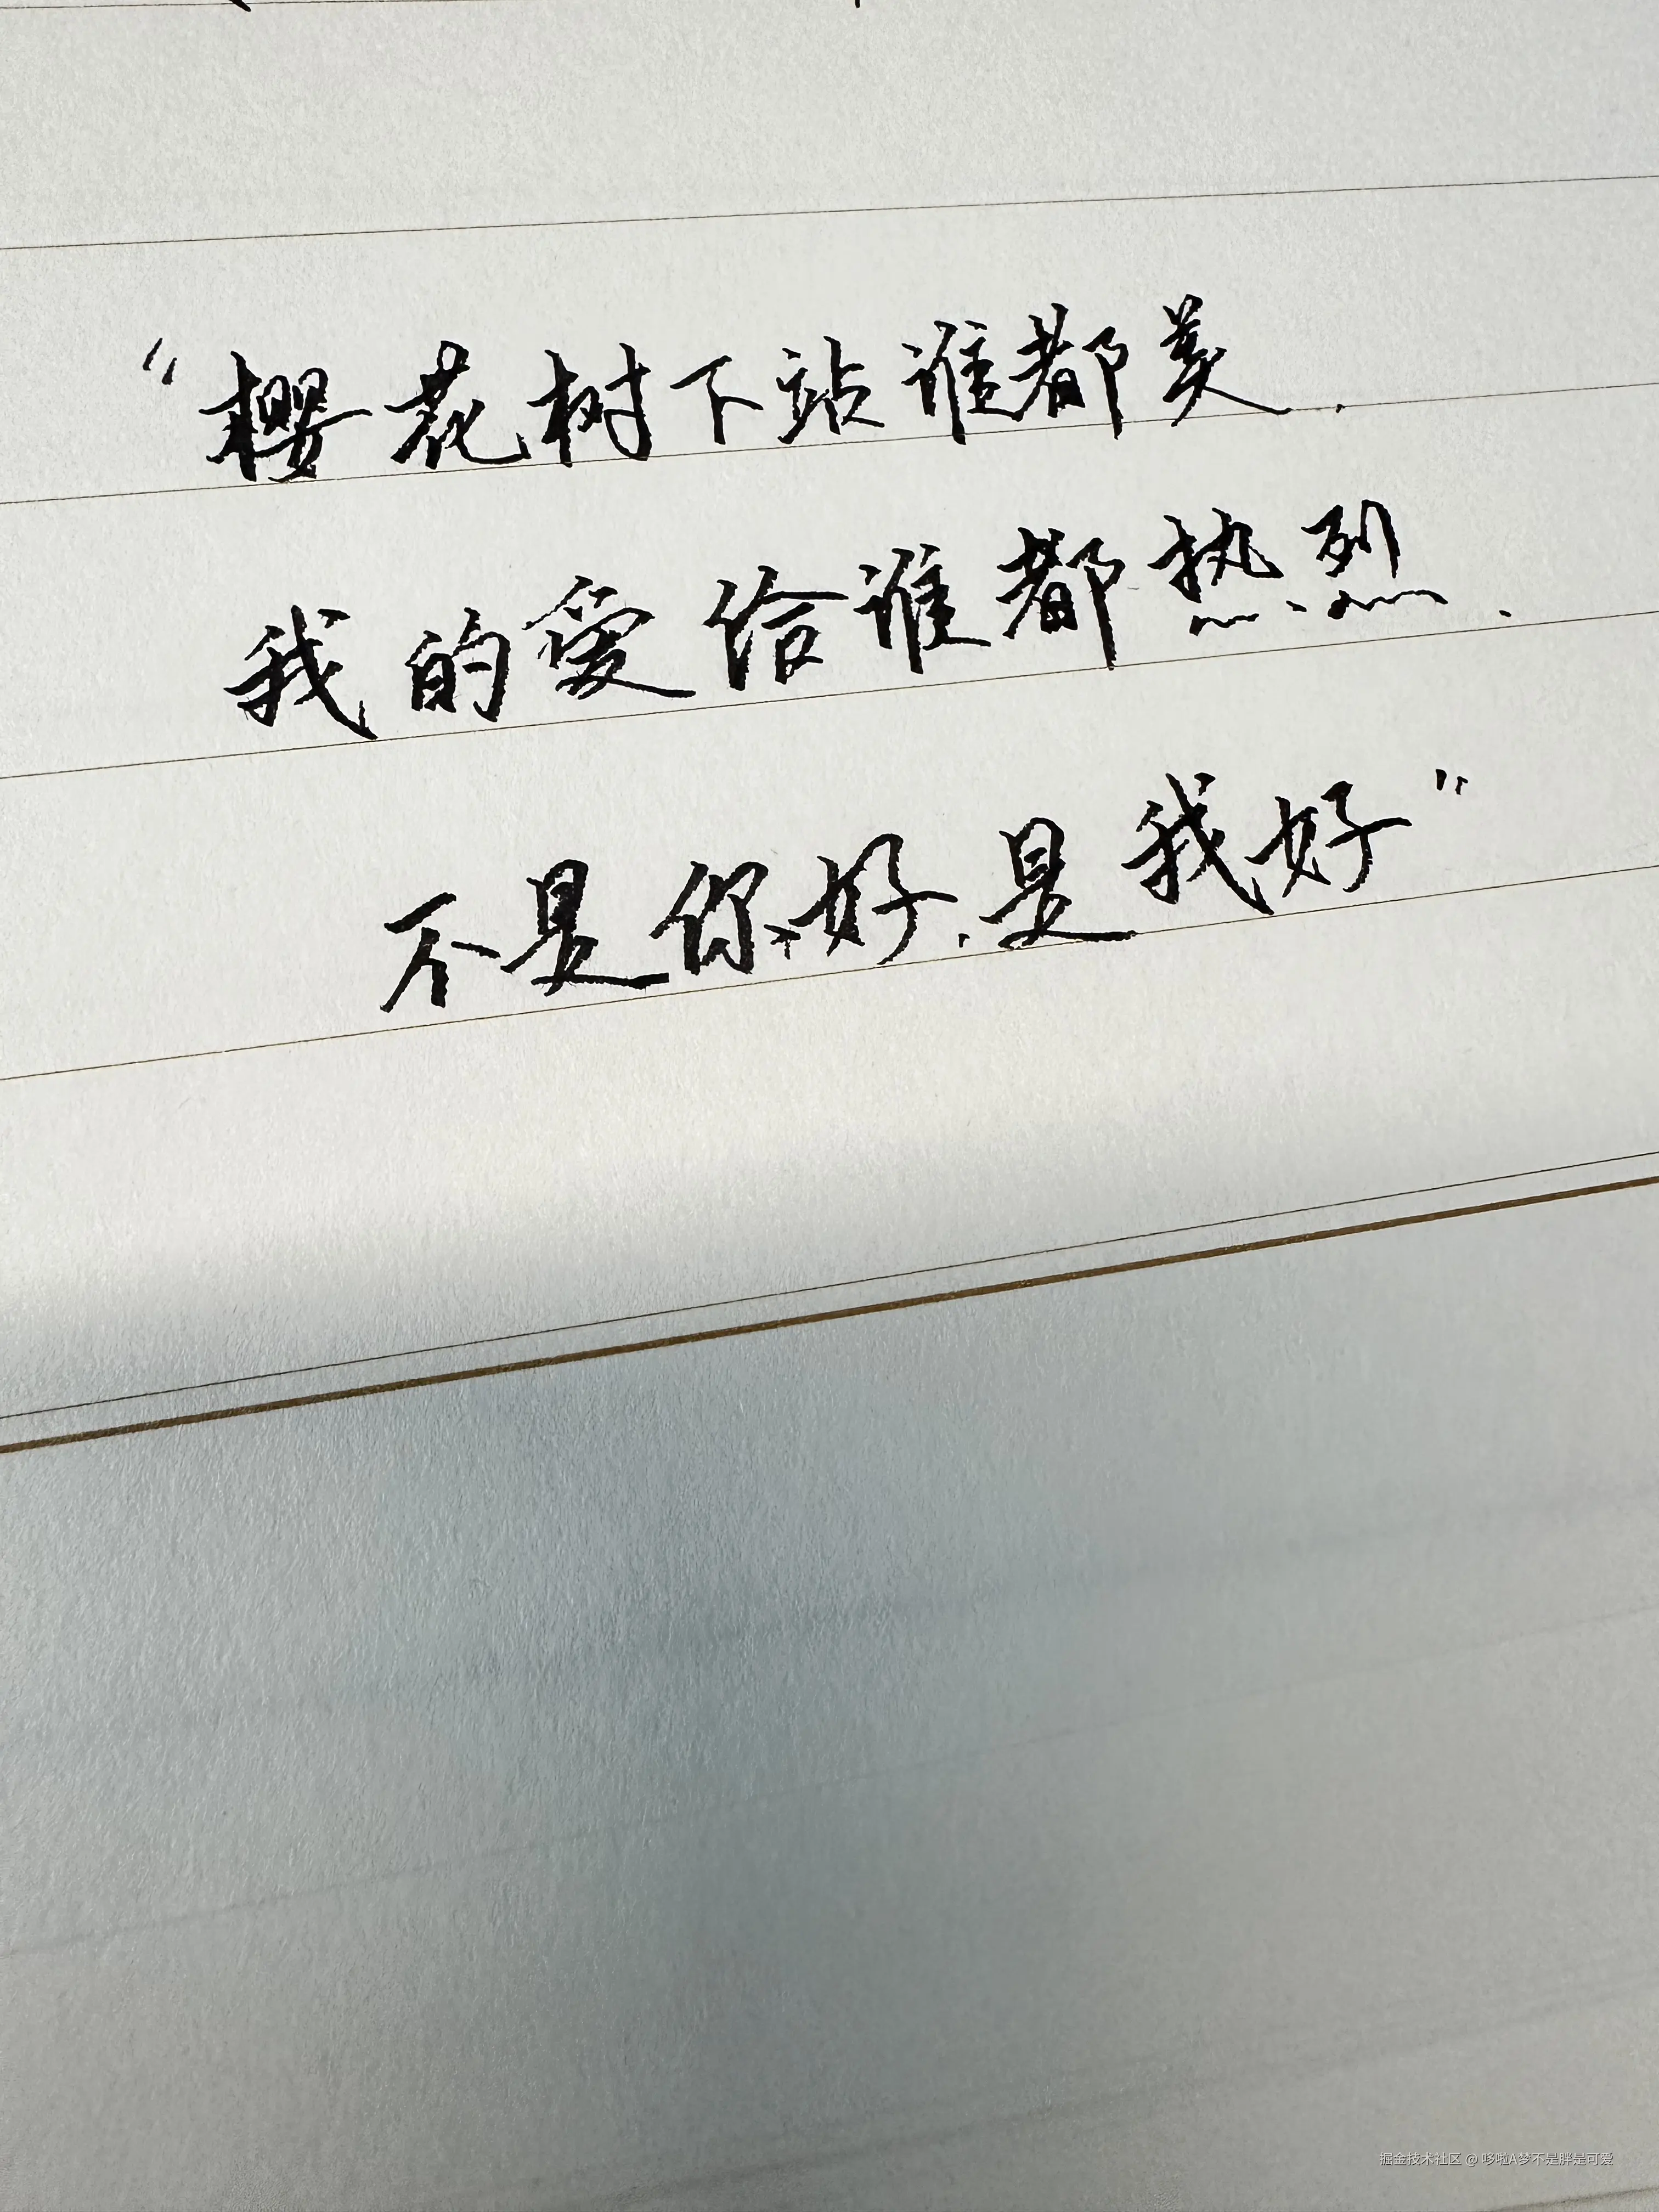 “樱花树下站谁都美.
我的爱给谁都热烈.
不是你好.是我好”
掘金技术社区 @ 哆啦A梦不是胖是可爱